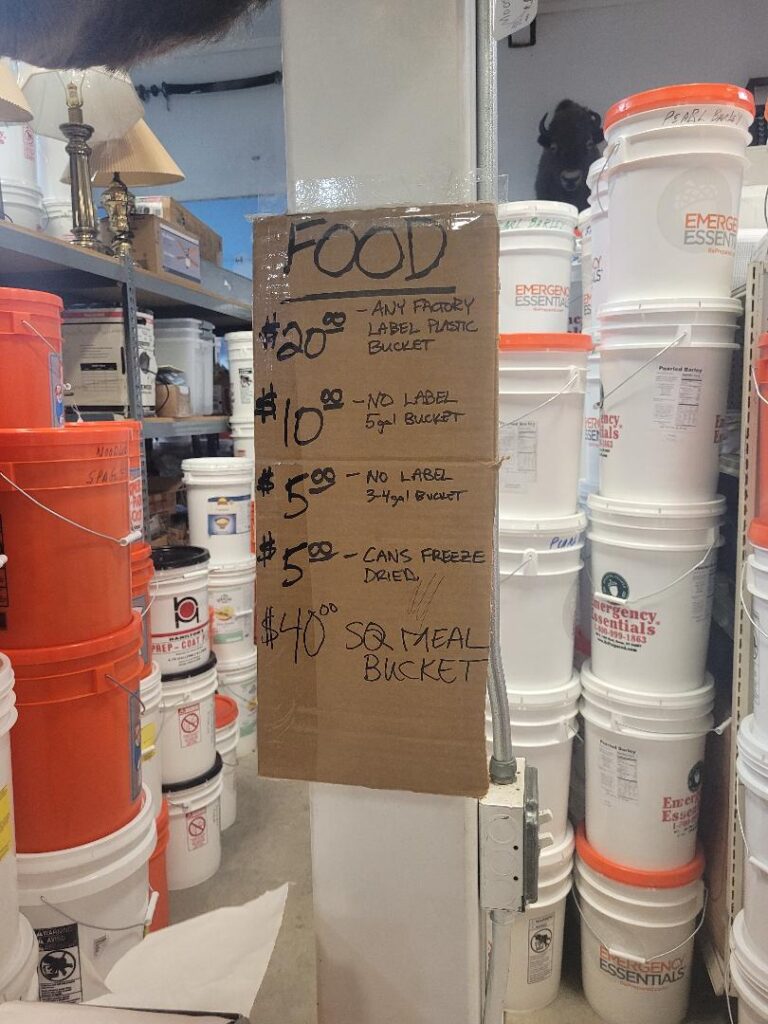 FOOD
$20.00 - ANY FACTORY
LABEL PLASTIC
BUCKET
$10.00 - NO LABEL
5gal BUCKET
$5.00 - NO LABEL
3-4gal BUCKET
$5.00 - CANS FREEZE
DRIED
$40.00 SQ MEAL
BUCKET
PEARL BARLEY
EMERGE
ESSENTI
BARLEY
EMERGENCY
ESSENTIALS
Pearled Barley
Essentials
Emergency
Essentials
1-800-999-1863
Pearled Barley
EMERGENCY
ESSENTIALS
PREP-COAT
WARNING